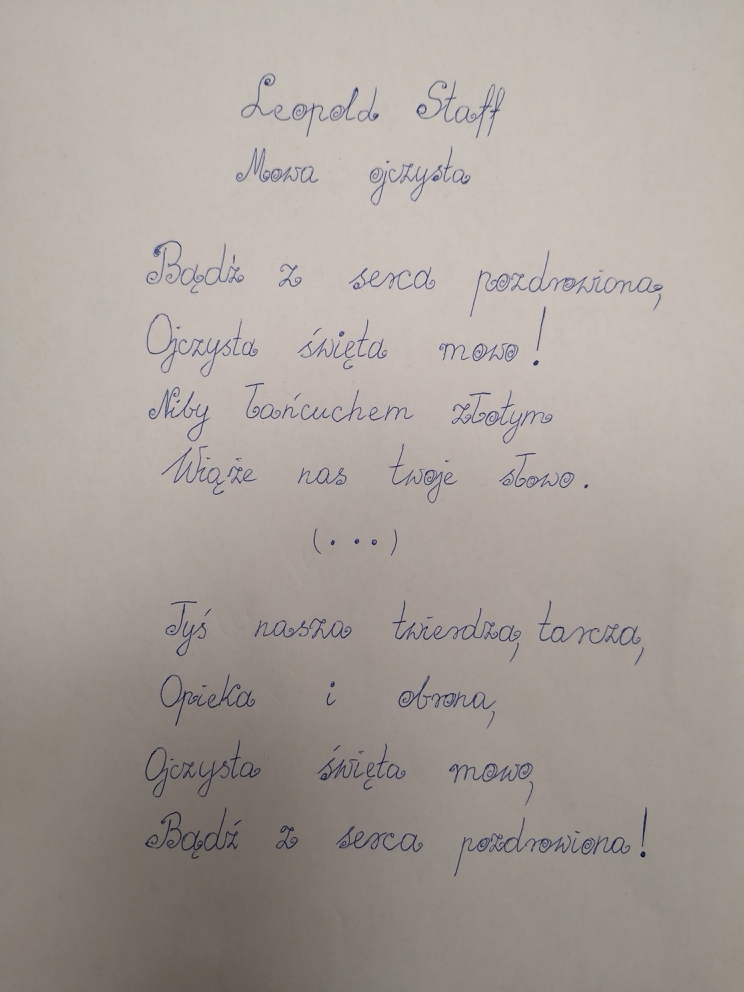 Leopold Staff
Mowa ojczysta
Bądź z serca pozdrowiona,
Ojczysta święta mowo!
Niby łańcuchem złotym
Wiąże nas twoje słowo.
(...)
Tyś nasza twierdza, tarcza,
Opieka i obrona,
Ojczysta święta mowo,
Bądź z serca pozdrowiona!